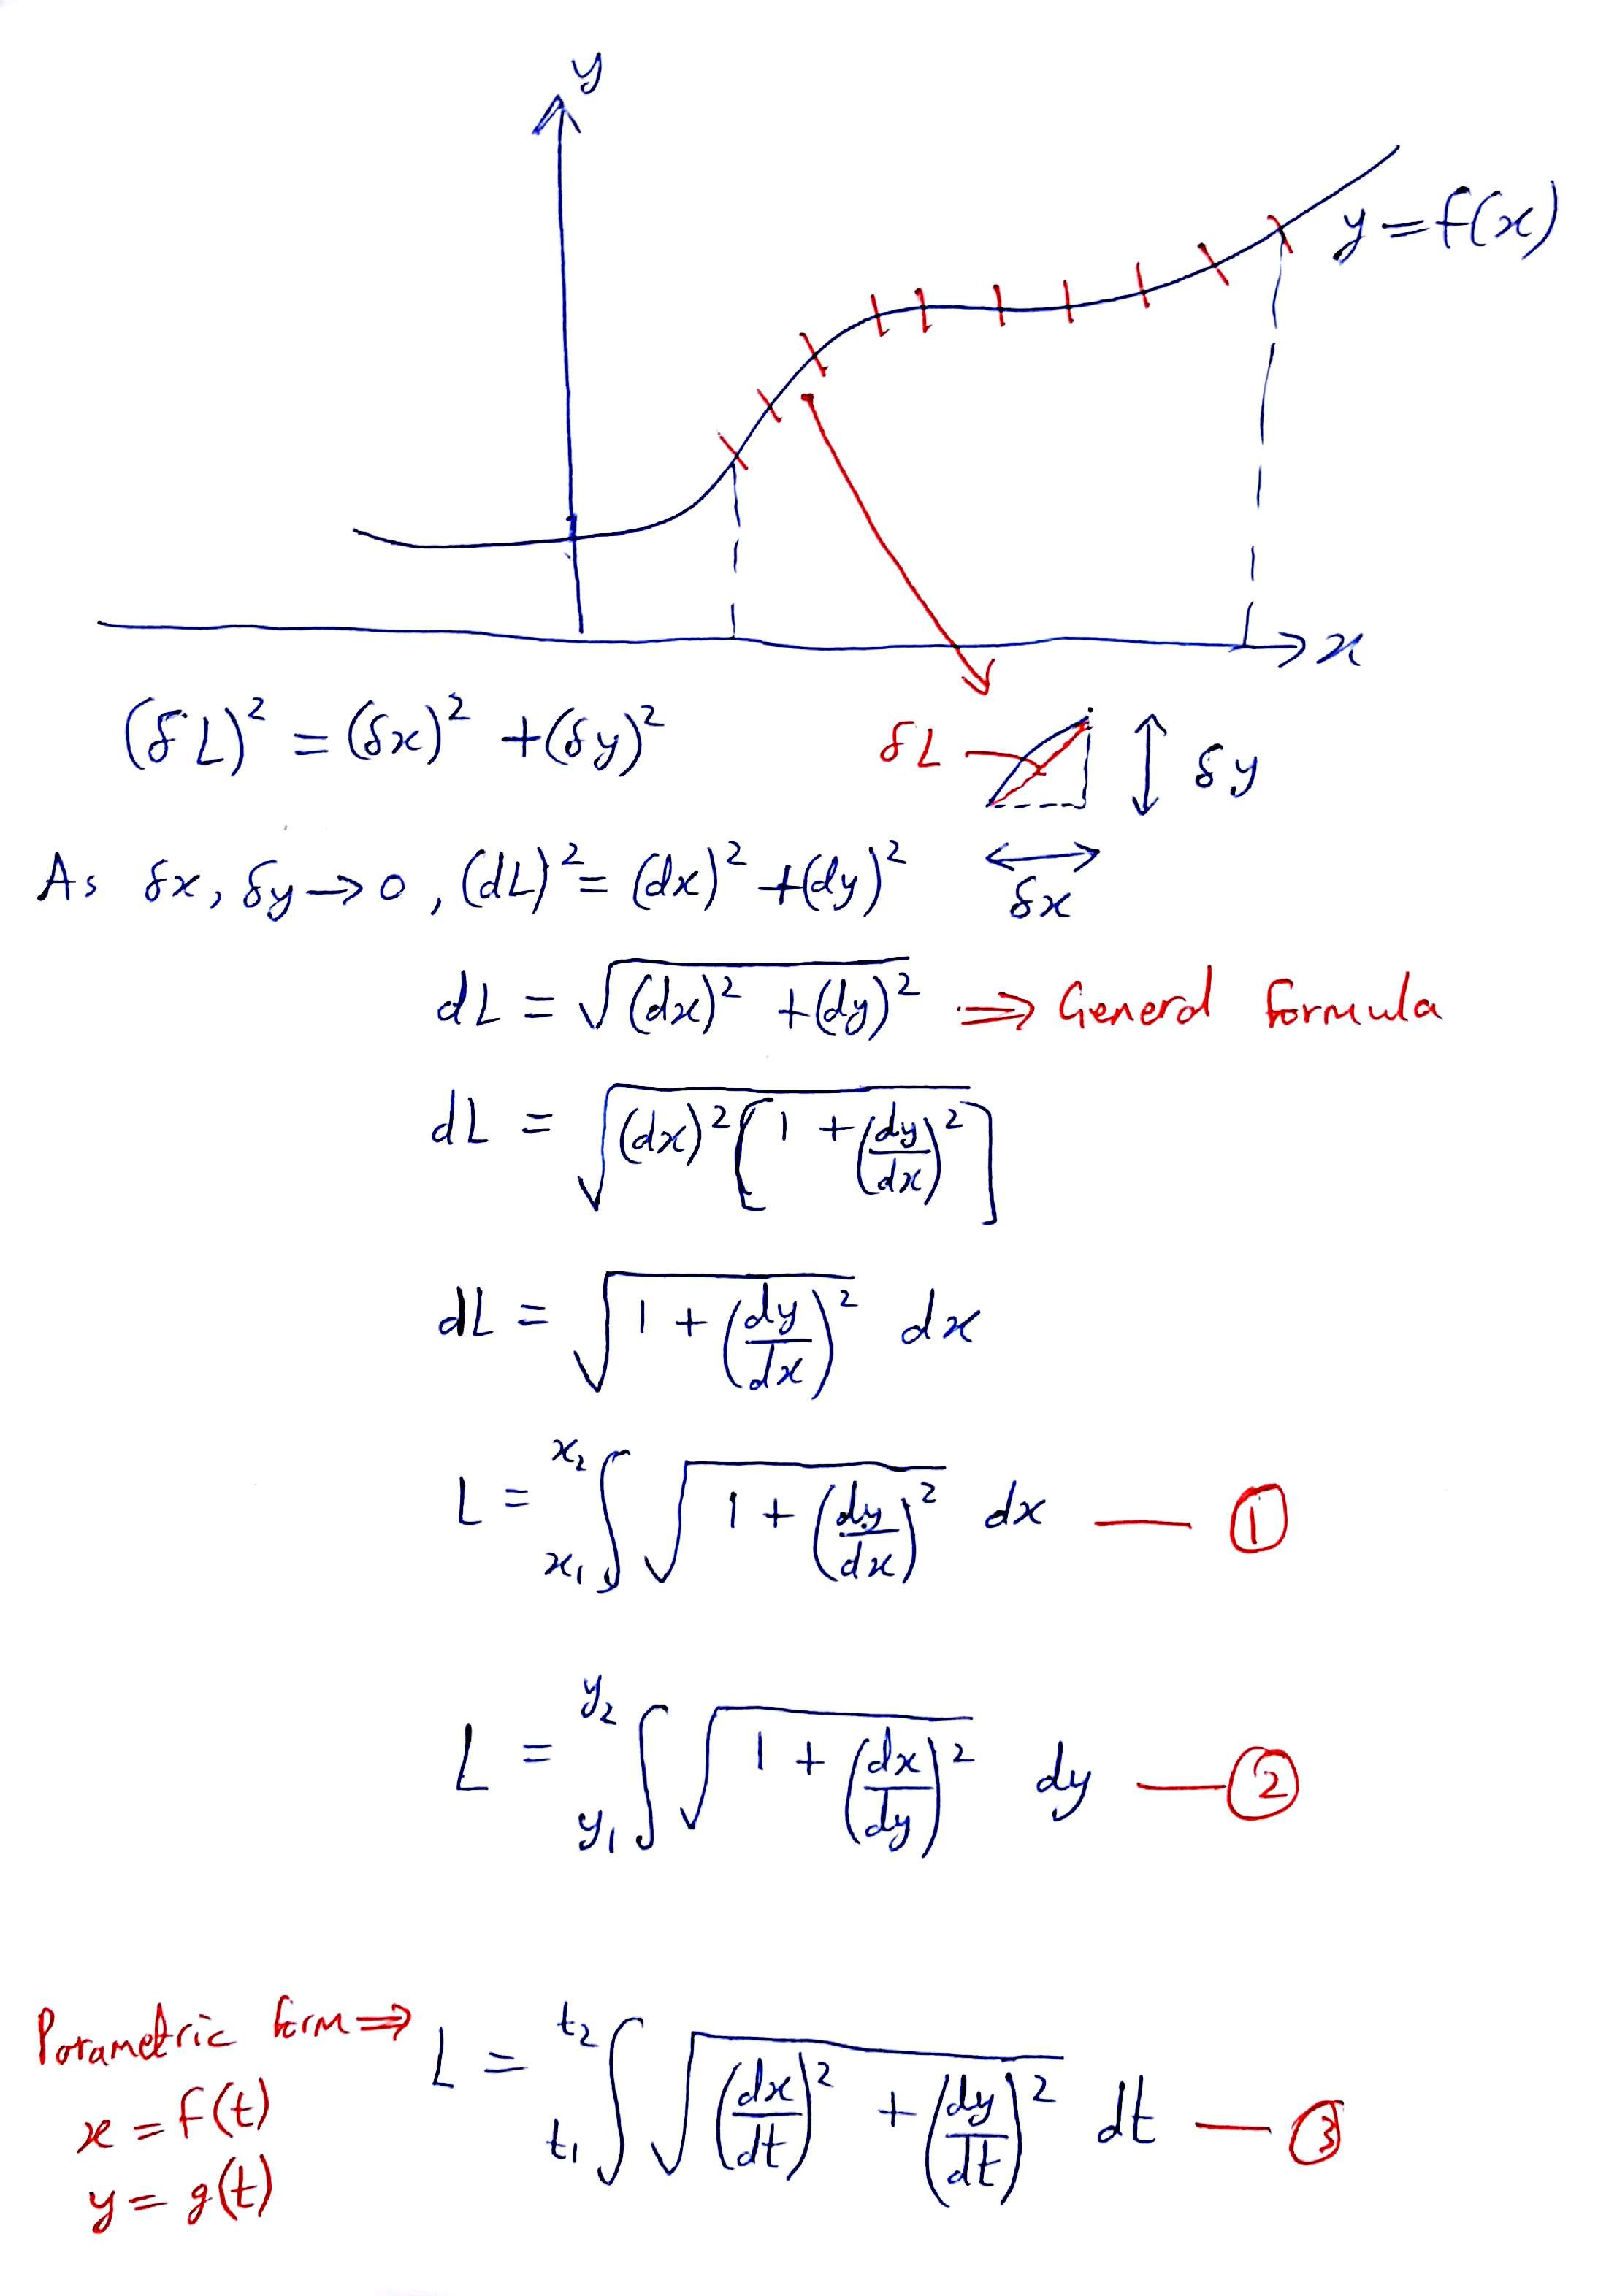 y
y = f(x)
x
(δL)² = (δx)² + (δy)²
δL
δy
δx
As δx, δy → 0, (dL)² = (dx)² + (dy)²
dL = √((dx)² + (dy)²) ⇒ General formula
dL = √((dx)² [1 + (dy/dx)²])
dL = √(1 + (dy/dx)²) dx
L = ∫_{x₁}^{x₂} √(1 + (dy/dx)²) dx — ①
L = ∫_{y₁}^{y₂} √(1 + (dx/dy)²) dy — ②
Parametric form ⇒ L = ∫_{t₁}^{t₂} √((dx/dt)² + (dy/dt)²) dt — ③
x = f(t)
y = g(t)